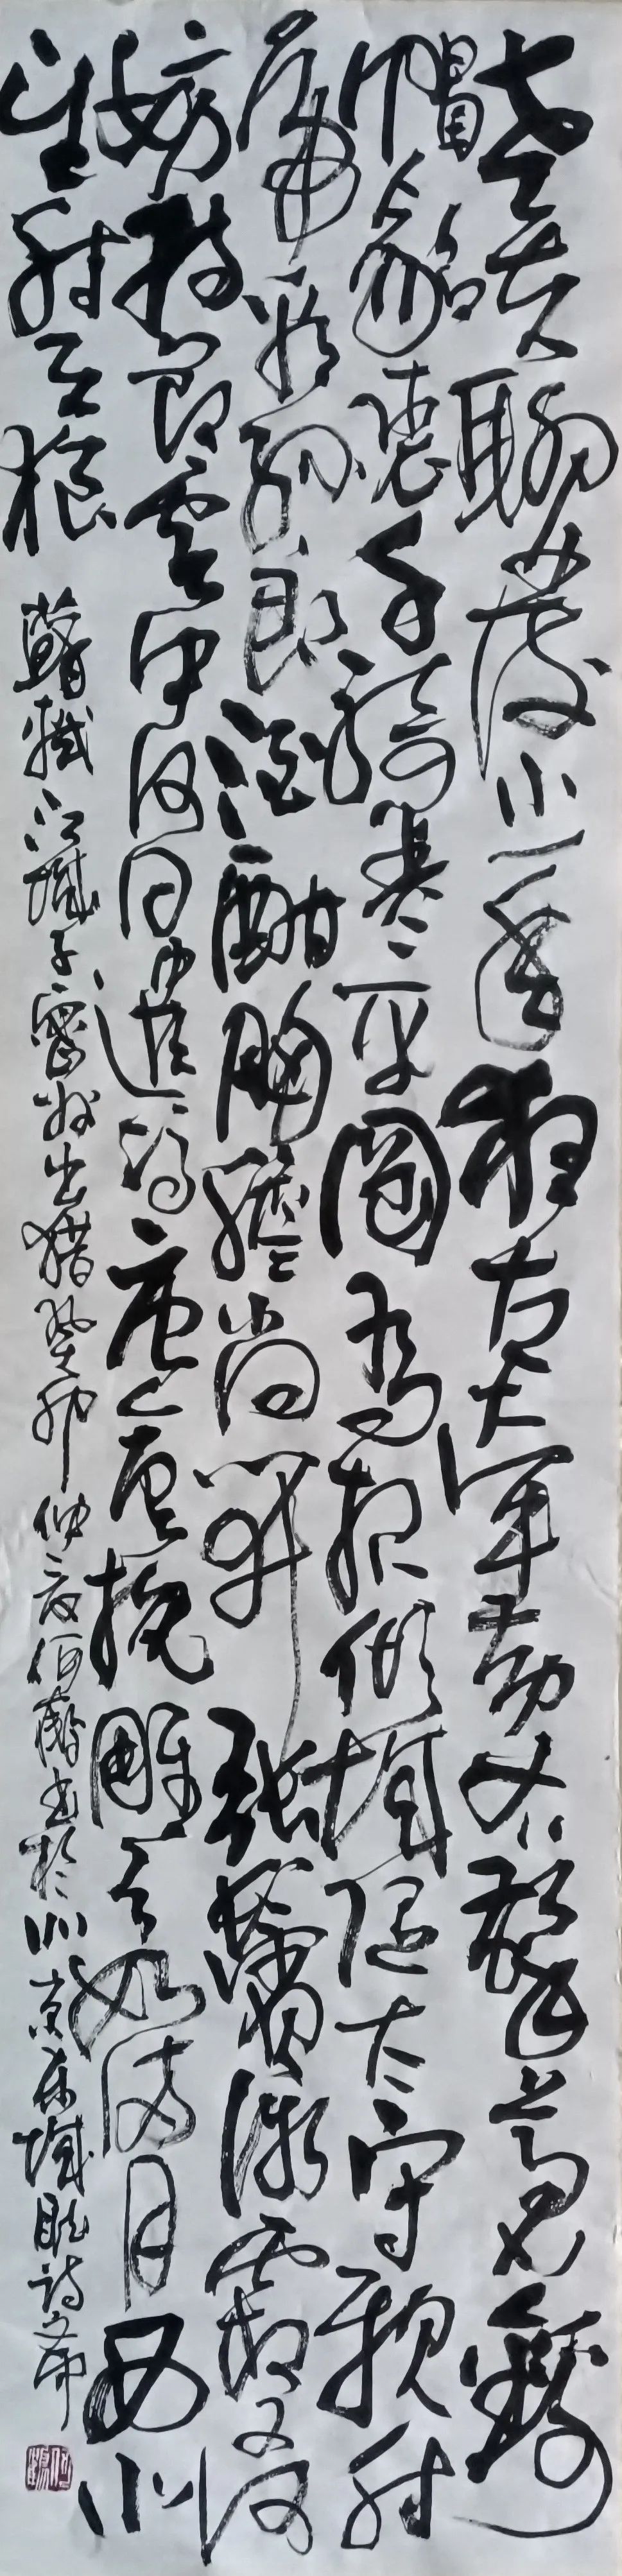 老夫聊發少年狂左牽黃右擎蒼錦
帽貂裘千騎卷平岡為報傾城隨太守親射
虎看孫郎酒酣胸膽尚開張鬢微霜又何
妨持節雲中何日遣馮唐會挽雕弓如滿月西北
望射天狼
蘇軾江城子密州出猎癸卯仲夏何鶴書於北京東城詩齋
何鶴